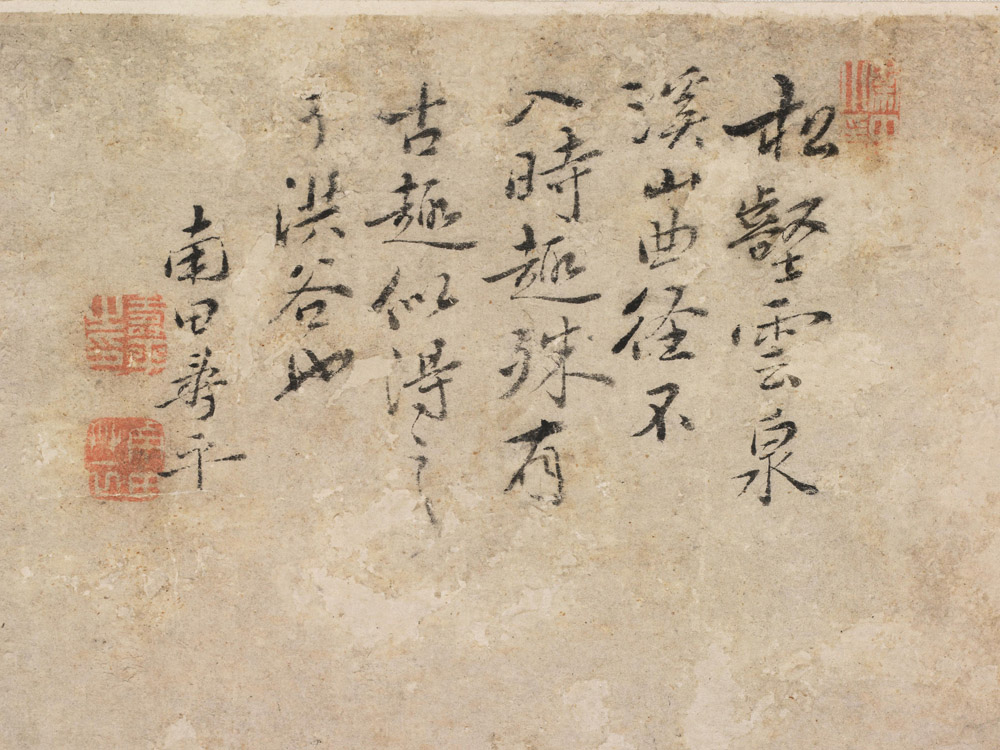 松壑雲泉
溪山曲径不
入時趣殊有
古趣似得之
于洪谷也
南田壽平